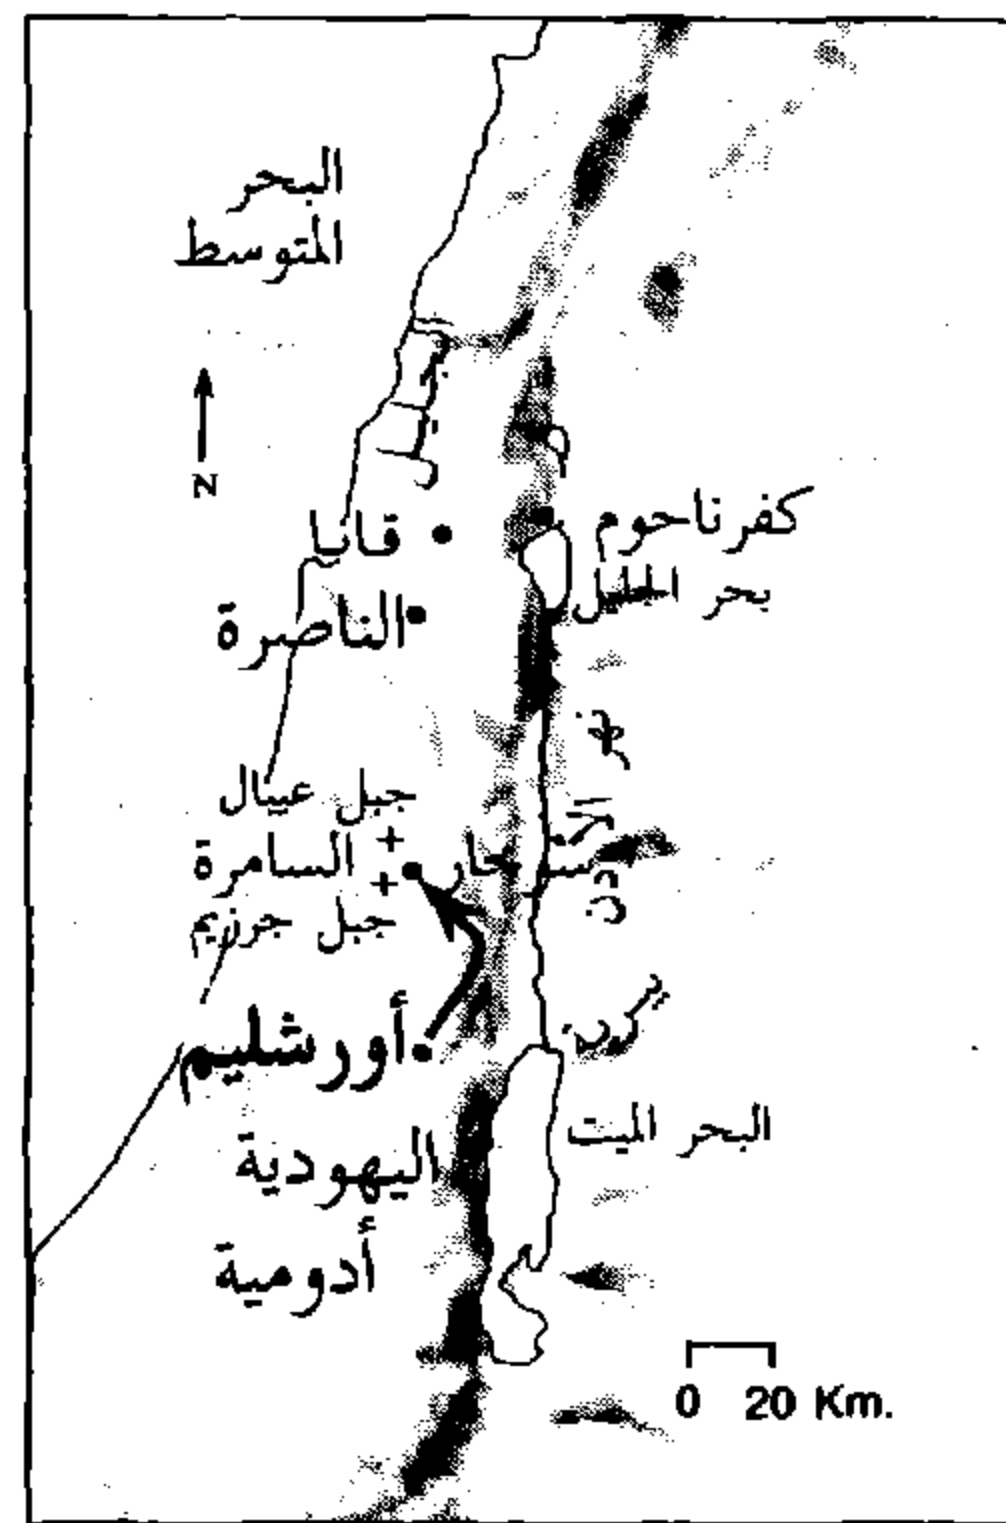 البحر
المتوسط
N
قانا
كفرناحوم
بحر الجليل
الناصرة
نهر
الأردن
جبل عيبال
السامرة
سوخار
جبل جرزيم
أورشليم
البحر الميت
اليهودية
أدومية
0 20 Km.